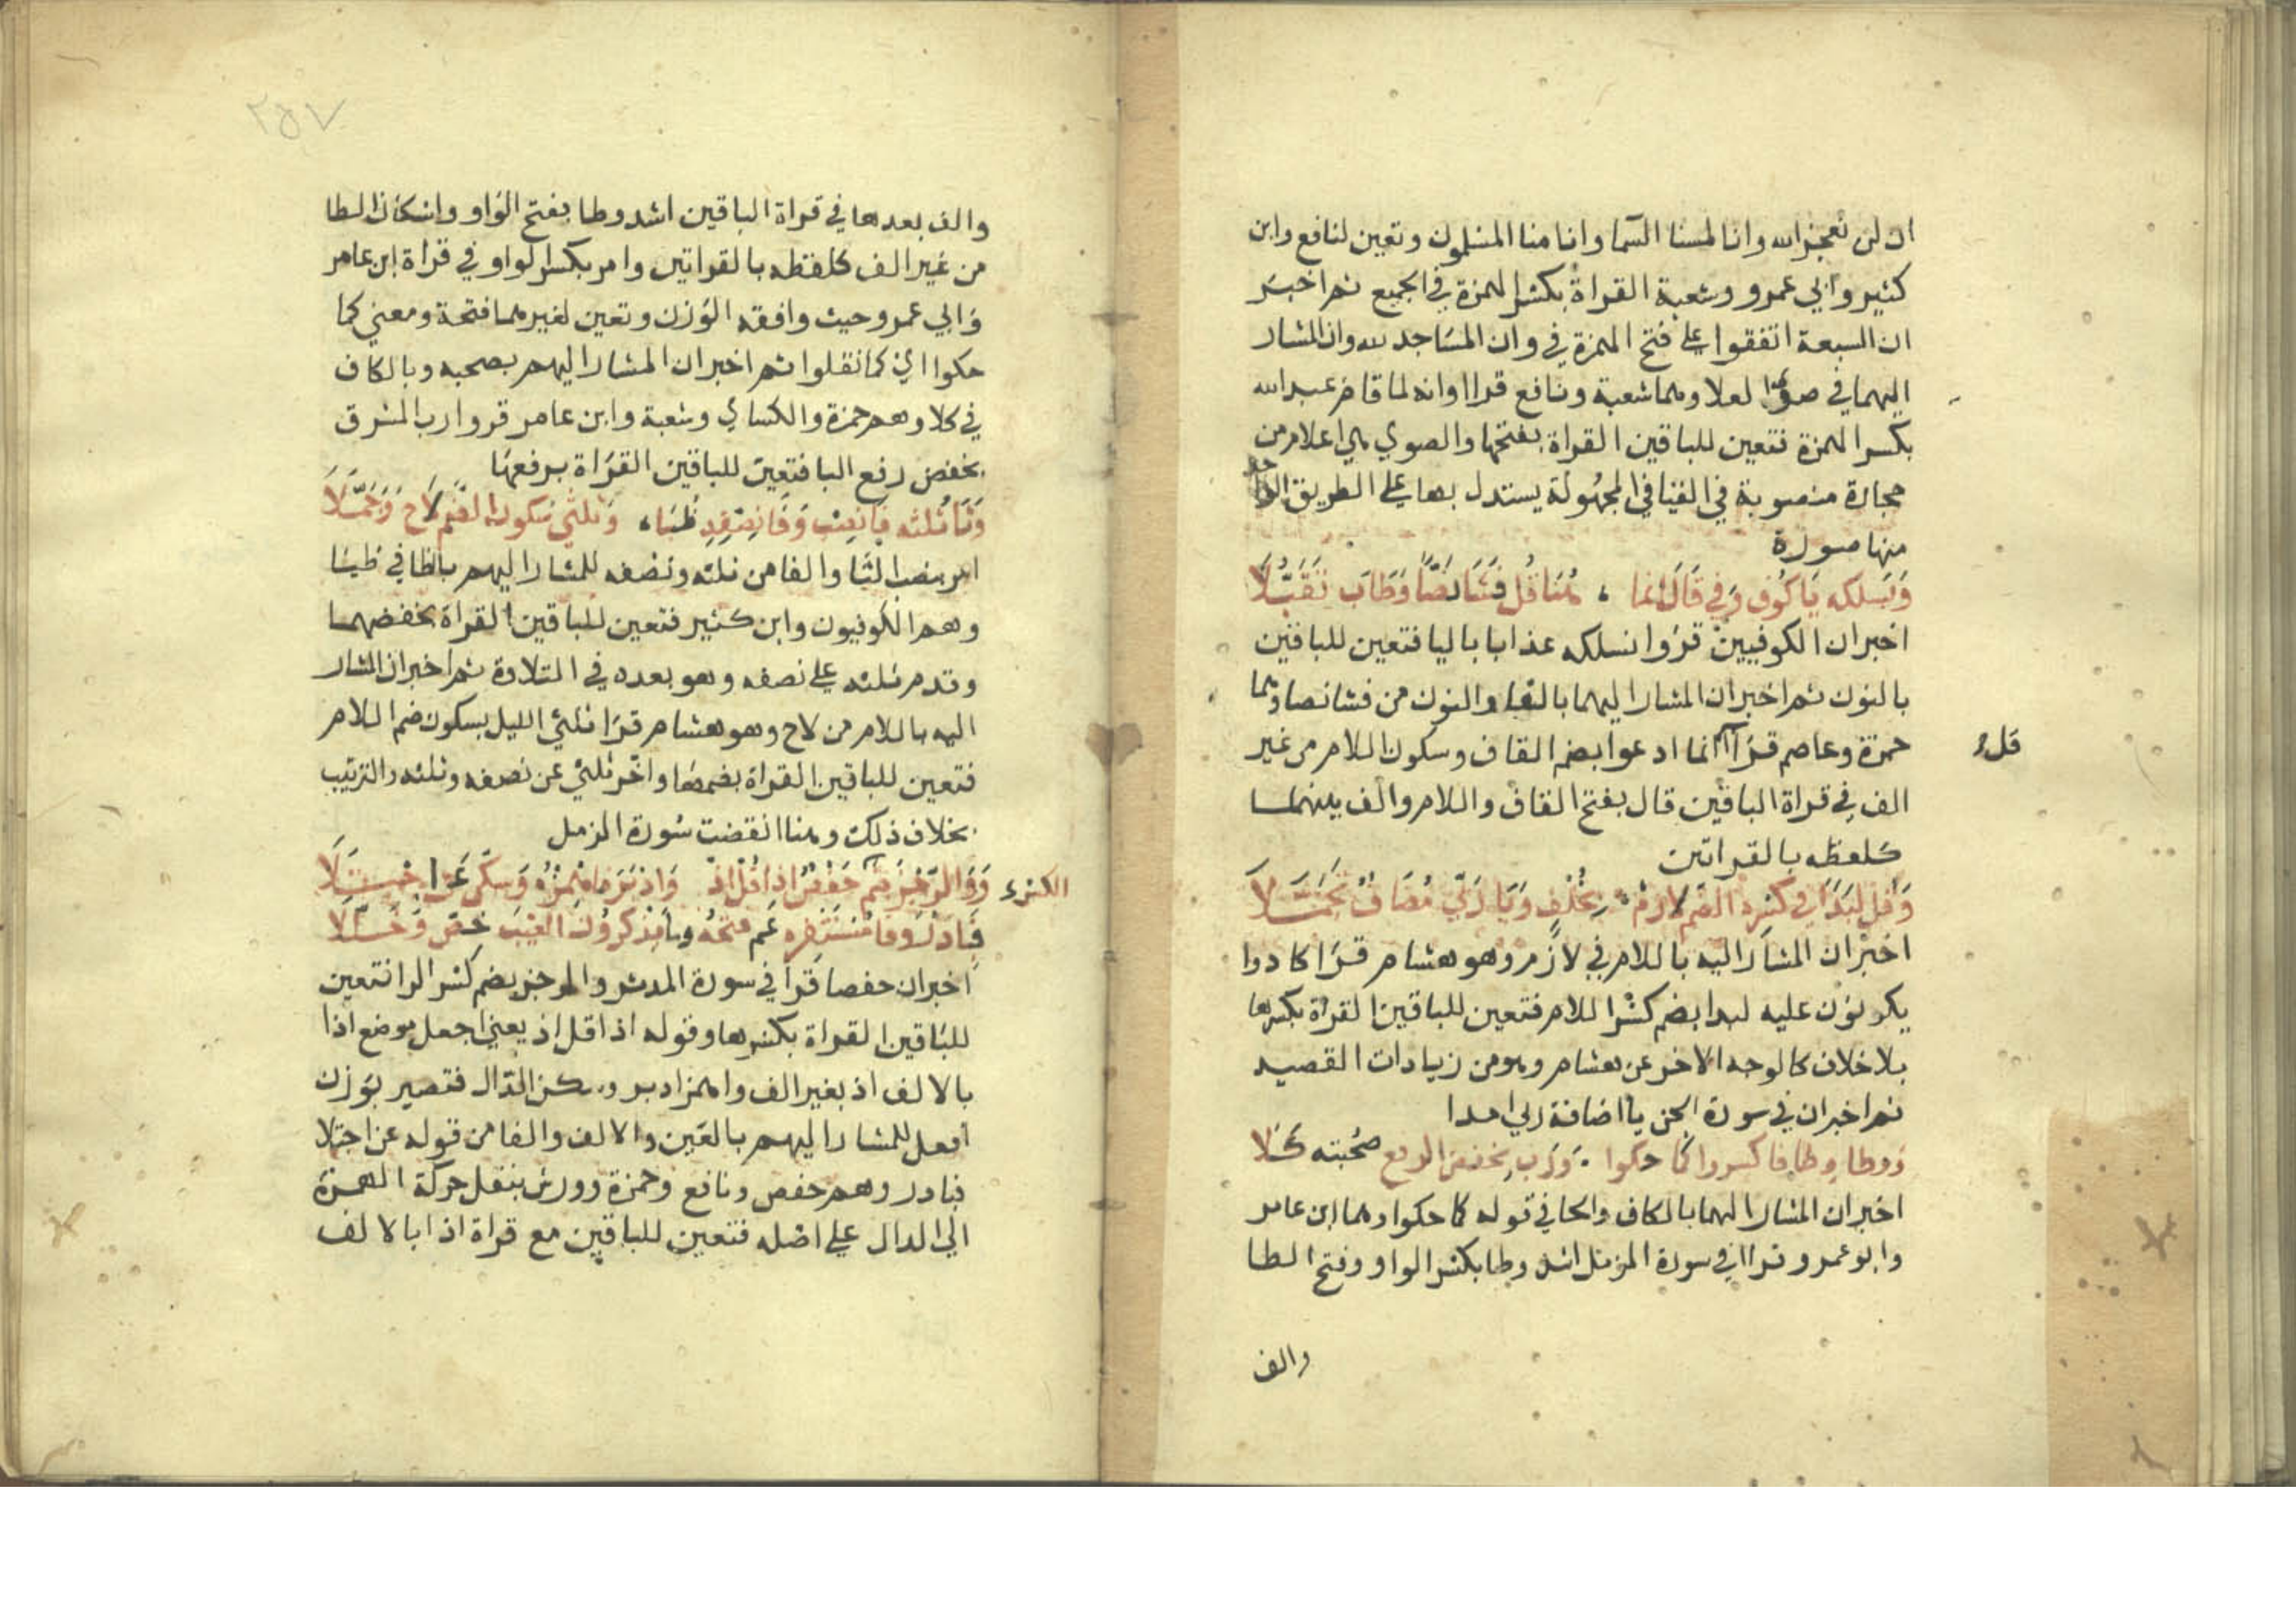 ان لن نعجز الله وانا لمسنا السما وانا منا المسلمون وتعين لنافع وابن
كثير وابي عمرو وشعبة القراة بكسر الهمزة في الجميع ثم اخبر
ان السبعة اتفقوا على فتح الهمزة في وان المساجد لله وان المشار
اليهما في صوى لعلا وهما شعبة ونافع قراا وانه لما قام عبد الله
بكسر الهمزة فتعين للباقين القراة بفتحها والصوي هي اعلام من
حجارة منصوبة في الفيافي المجهولة يستدل بها على الطريق الواحد
منها صورة
وَيَسلكه يَا كُوفٍ وَفي قَالَ انما ، هُنَا قُل فَشَا نَصًّا وَطَابَ تَقَبُّلَا
اخبر ان الكوفيين قرؤا نسلكه عذابا باليا فتعين للباقين
بالنون ثم اخبر ان المشار اليهما بالفا والنون من فشا نصا وهما
حمزة وعاصم قرآ انما ادعوا بضم القاف وسكون اللام من غير
قل
الف في قراة الباقين قال بفتح القاف واللام والف بينهما
كلفظه بالقراتين
وَقُل لِبَدًا في كسره الضم لازم بِخُلْفٍ وَيَا رَبِّي مُضَافٌ تَجَمَّلَا
اخبر ان المشار اليه باللام في لازم وهو هشام قرا كادوا
يكونون عليه لبدا بضم كسر اللام فتعين للباقين القراة بكسرها
بلا خلاف كالوجه الاخر عن هشام وهو من زيادات القصيد
ثم اخبر ان في سورة الجن يا اضافة ربي امدا
ووطا وطا فاكسروا كما حكوا . وَرَبِ بخفض الرفع صُحبته كَلا
اخبر ان المشار اليهما بالكاف والحا في قوله كما حكوا وهما ابن عامر
وابو عمرو قراا في سورة المزمل اشد وطا بكسر الواو وفتح الطا
والف
٢٥٧
والف بعدها في قراة الباقين اشد وطا بفتح الواو واسكان الطا
من غير الف كلفظه بالقراتين وامر بكسر الواو في قراة ابن عامر
وابي عمرو وحيث وافقه الوزن وتعين لغيرهما فتحة ومعنى كما
حكوا اي كما نقلوا ثم اخبر ان المشار اليهم بصحبه وبالكاف
في كلا وهم حمزة والكساي وشعبة وابن عامر قروا رب المشرق
بخفض رفع البا فتعين للباقين القراة برفعها
وَثَا ثُلثه فانصِب وَفَا نِصْفِهِ ظُبَا ، وَثُلثي سُكون الضَّم لَاح وَجَمَّلَا
امر بنصب الثا والفا من ثلثه ونصفه للمشار اليهم بالظا في ظبا
وهم الكوفيون وابن كثير فتعين للباقين القراة بخفضهما
وقدم ثلثه على نصفه وهو بعده في التلاوة ثم اخبر ان المشار
اليه باللام من لاح وهو هشام قرا ثلثي الليل بسكون ضم اللام
فتعين للباقين القراة بضمها واخر ثلثي عن نصفه وثلثه والترتيب
بخلاف ذلك وهنا انقضت سورة المزمل
وَوَالرُّجْزَ ضَم حَفْصٌ اذا قُل اذ وَاَدْبَرَ فاهمزه وسكّن عَن اجْتِلَا
الكسرء
فَبَادِر وفا مُسْتَنفِره عَم فتحُه وما يَذكرُونَ الغَيْبَ خصّ وَخُلِّلَا
اخبر ان حفصا قرا في سورة المدثر والرجز بضم كسر الرا فتعين
للباقين القراة بكسرها وقوله اذا قل اذ يعني اجعل موضع اذا
بالالف اذ بغير الف واهمز ادبر وسكن الدال فتصير بوزن
افعل للمشار اليهم بالعين والالف والفا من قوله عن اجتلا
فبادر وهم حفص ونافع وحمزة وورش بنقل حركة الهمزة
الى الدال على اصله فتعين للباقين مع قراة اذا بالالف